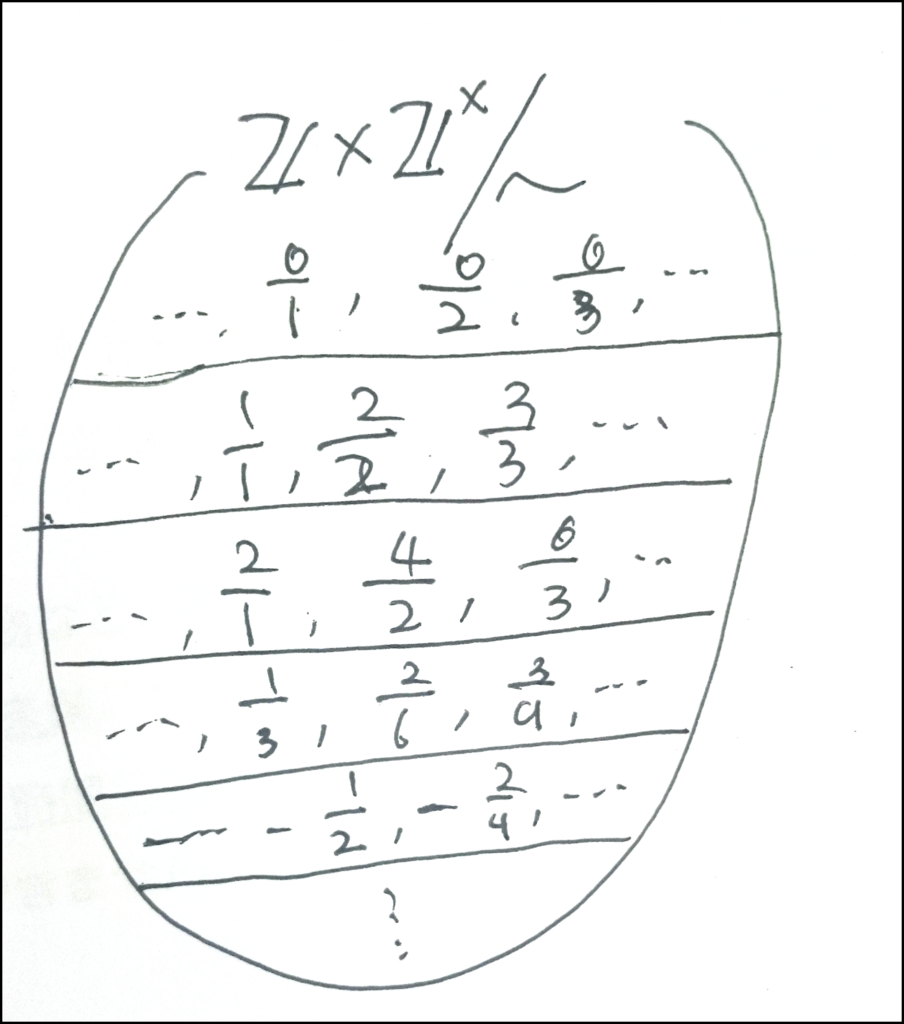 ℤ × ℤ^× / ∼
..., 0/1, 0/2, 0/3, ...
..., 1/1, 2/2, 3/3, ...
..., 2/1, 4/2, 6/3, ...
..., 1/3, 2/6, 3/9, ...
... - 1/2, - 2/4, ...
⋮